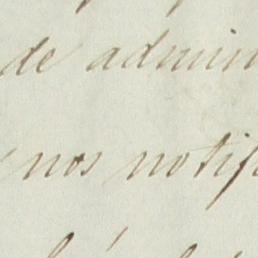 de admin
nos notif